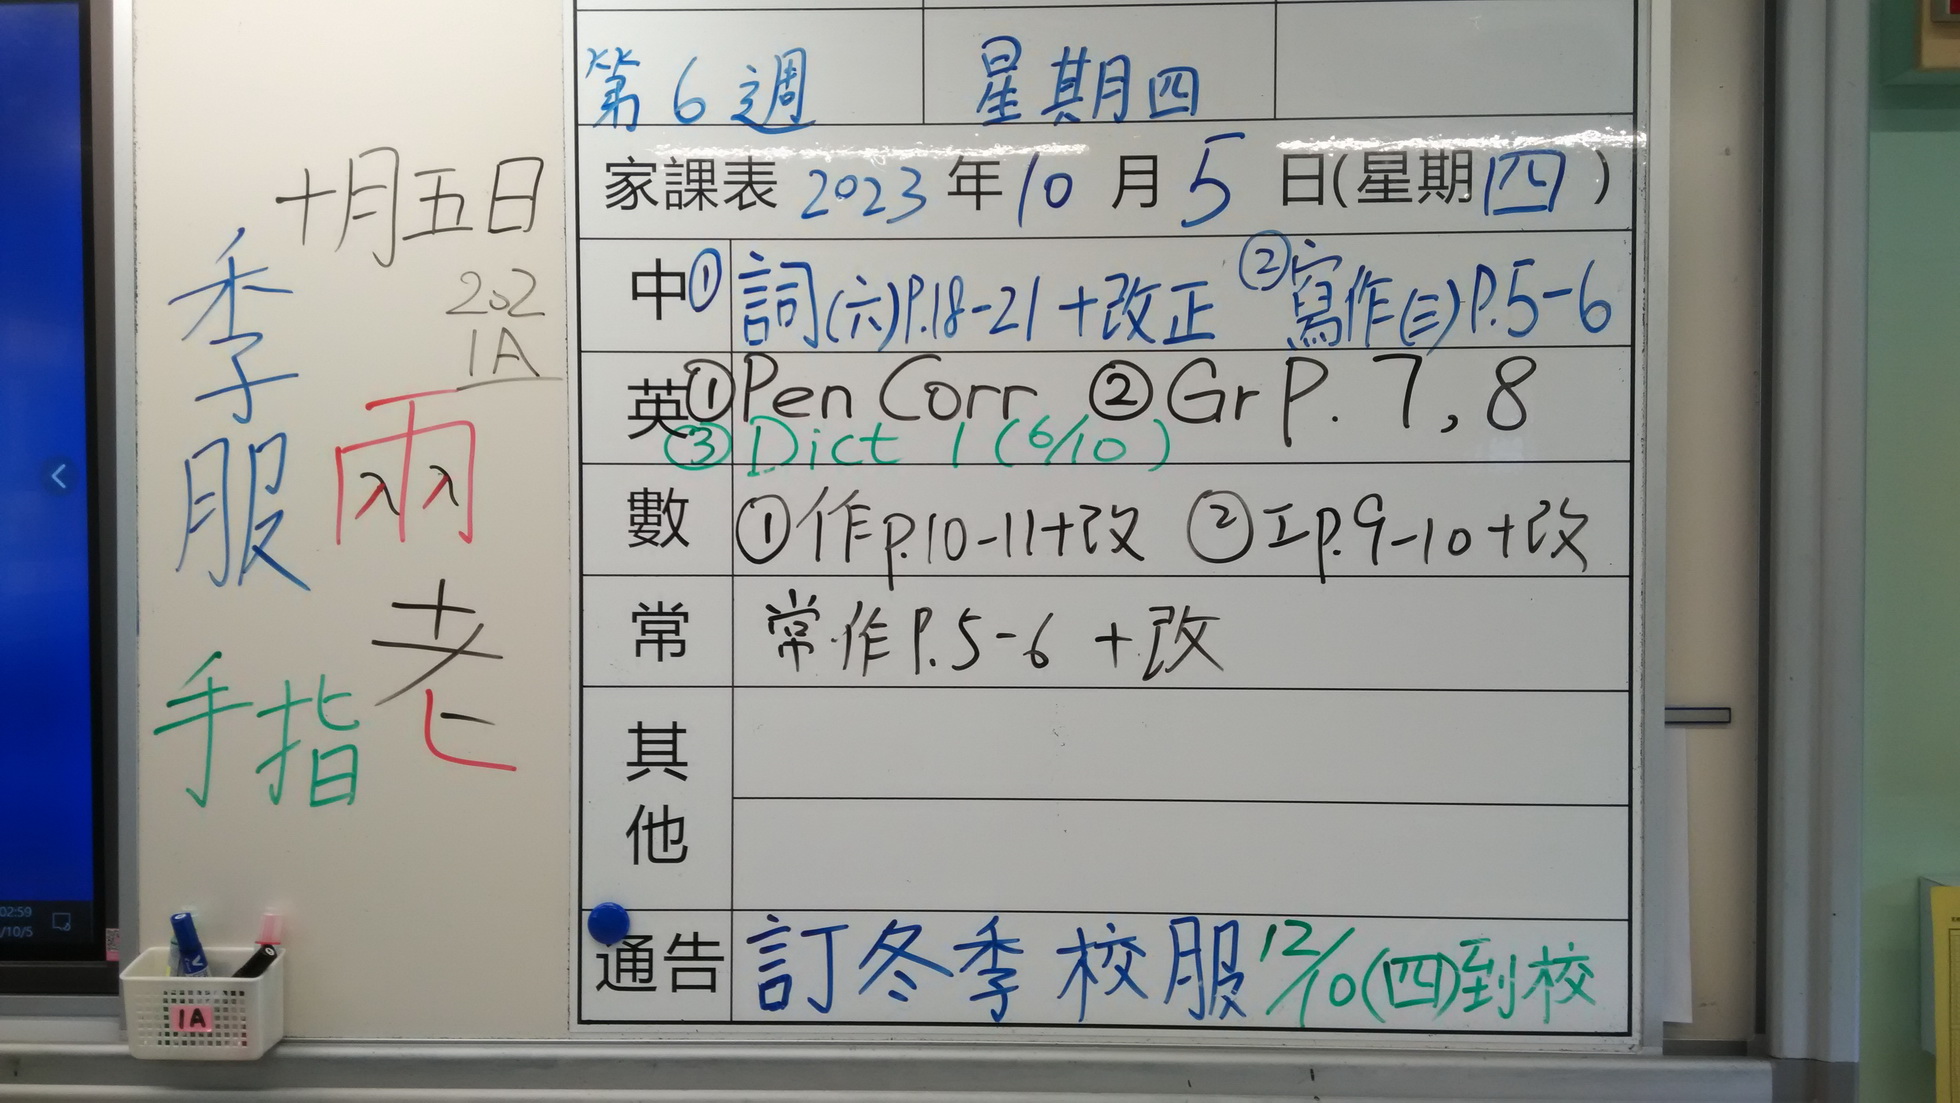 第6週 星期四
家課表 2023年10月5日(星期四)
中 ①詞(六)P.18-21+改正 ②寫作(三)P.5-6
英 ①Pen Corr ②Gr P. 7, 8
③Dict 1 (6/10)
數 ①作p.10-11+改 ②工p.9-10+改
常 常作P.5-6 +改
其他
通告 訂冬季校服 12/10(四)到校
十月五日
202
1A
季服
兩
老
手指
1A
02:59
/10/5